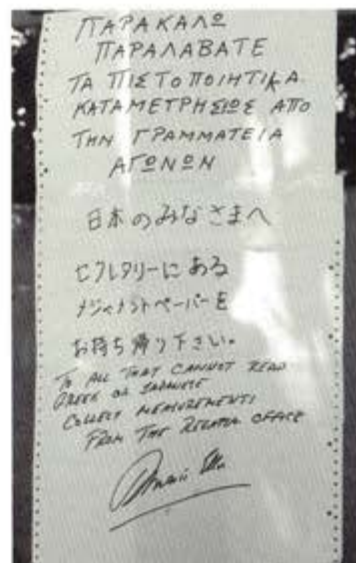 ΠΑΡΑΚΑΛΩ
ΠΑΡΑΛΑΒΑΤΕ
ΤΑ ΠΙΣΤΟΠΟΙΗΤΙΚΑ
ΚΑΤΑΜΕΤΡΗΣΕΩΣ ΑΠΟ
ΤΗΝ ΓΡΑΜΜΑΤΕΙΑ
ΑΓΩΝΩΝ
日本のみなさまへ
セクレタリーにある
メジャメントペーパーを
お持ち帰り下さい。
TO ALL THAT CANNOT READ
GREEK OR JAPANESE
COLLECT MEASUREMENTS
FROM THE REGATTA OFFICE